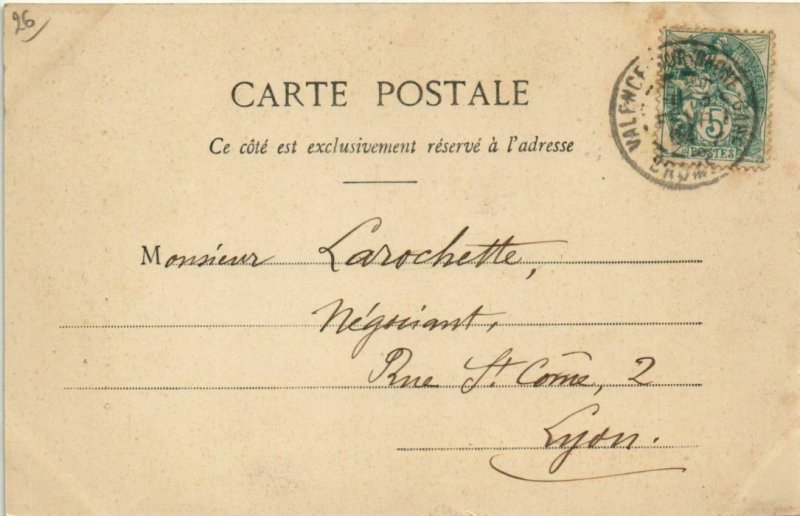 26
CARTE POSTALE
Ce côté est exclusivement réservé à l'adresse
Monsieur Larochette,
Négociant,
Rue St. Côme, 2
Lyon.
VALENCE
DROME
5
POSTES